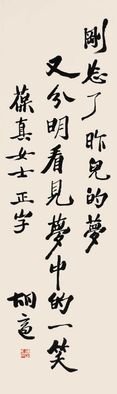 剛忘了昨兒的夢
又分明看見夢中的一笑
葆真女士正字
胡適